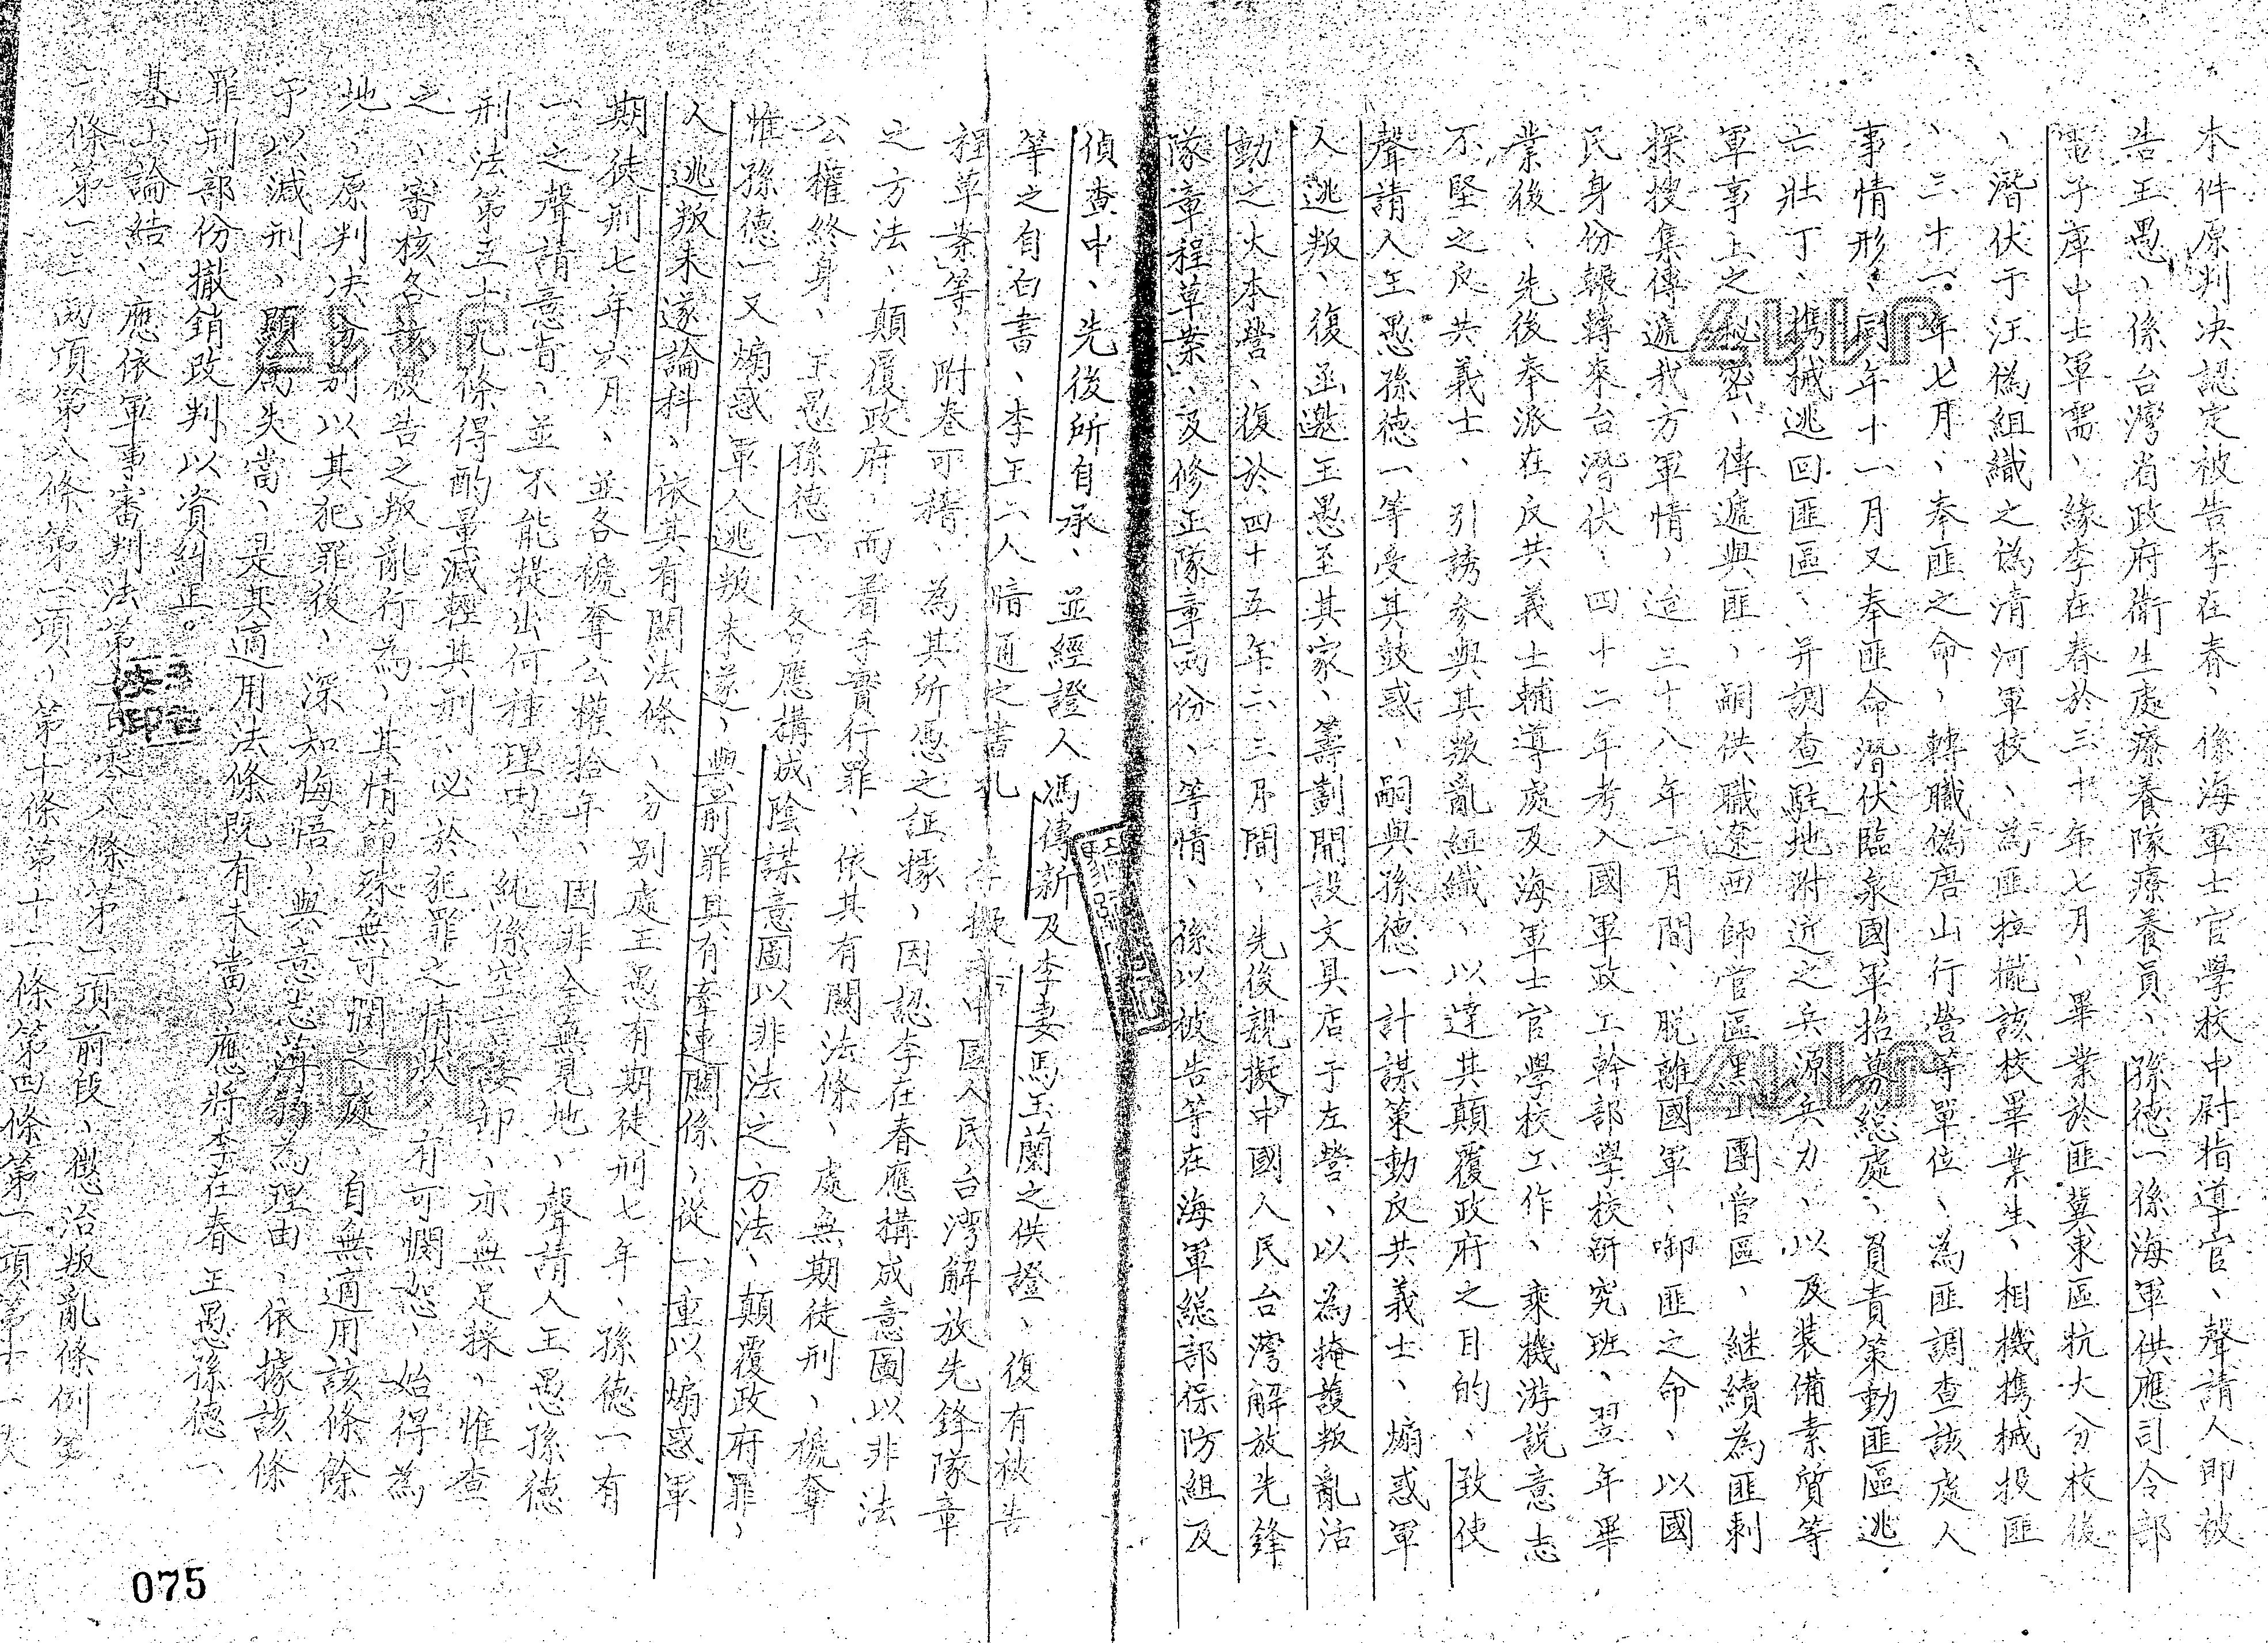 本件原判决認定被告李在春、係海軍士官學校中尉指導官、聲請人即被
告王愚、係台灣省政府衛生處療養隊療養員、孫德一係海軍供應司令部
電子庫中士軍需、緣李在春於三十年七月、畢業於匪冀東區抗大分校後
、潛伏于汪偽組織之偽清河軍校、為匪拉攏該校畢業生、相機携械投匪
、三十一年七月、奉匪之命、轉職偽唐山行營等單位、為匪調查該處人
事情形、同年十一月又奉匪命潛伏臨泉國軍招募總處、負責策動匪區逃
亡壯丁、携械逃回匪區、并調查駐地附近之兵源兵力、以及裝備素質等
軍事上之秘密、傳遞與匪、嗣供職遼西師管區黑山團管區、継續為匪刺
探搜集傳遞我方軍情、迨三十八年二月間、脫離國軍、啣匪之命、以國
民身份輾轉來台潛伏、四十二年考入國軍政工幹部學校研究班、翌年畢
業後、先後奉派在反共義士輔導處及海軍士官學校工作、乘機游説意志
不堅之反共義士、引誘参與其叛亂組織、以達其顛覆政府之目的、致使
聲請人王愚孫德一等受其鼓惑、嗣與孫德一計謀策動反共義士、煽惑軍
人逃叛、復函邀王愚至其家、籌劃開設文具店于左營、以為掩護叛亂活
動之大本營、復於四十五年二三月間、先後親擬中國人民台灣解放先鋒
隊章程草案、及修正隊章兩份、等情、孫以被告等在海軍総部保防組及
偵查中、先後所自承、並經證人馮傳新及李妻馬玉蘭之供證、復有被告
等之自白書、李王二人暗通之書札、李擬中國人民台灣解放先鋒隊章
程草案等、附卷可稽、為其所憑之証據、因認李在春應構成意圖以非法
之方法、顛覆政府、而着手實行罪、依其有関法條、處無期徒刑、褫奪
公權終身、王愚孫德一、各應構成陰謀意圖以非法之方法、顛覆政府罪、
惟孫德一又煽惑軍人逃叛未遂、與前罪具有牽連関係、從一重以煽惑軍
人逃叛未遂論科、依其有関法條、分別處王愚有期徒刑七年、孫德一有
期徒刑七年六月、並各褫奪公權拾年、固非全無見地、聲請人王愚孫德
一之聲請意旨、並不能提出何種理由、純係空言諉卸、亦無足採、惟查
刑法第五十九條得酌量減輕其刑、必於犯罪之情狀、有可憫恕、始得為
之、審核各該被告之叛亂行為、其情節殊無可憫之處、自無適用該條餘
地、原判决分別以其犯罪後、深知悔悟、與意志薄弱為理由、依據該條
予以減刑、顯為失當、是其適用法條既有未當、應將李在春王愚孫德一
罪刑部份撤銷改判以資糾正。
基上論結、應依軍事審判法第百零八條第一項前段、懲治叛亂條例第
二條第一三兩項第八條第一項、第十條第十二條第四條第一項第十一款
075